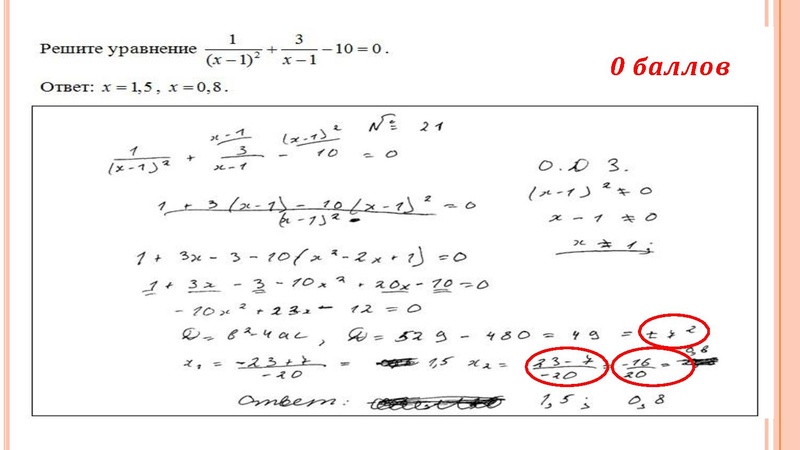 Решите уравнение 1/(x−1)² + 3/(x−1) − 10 = 0 .
0 баллов
Ответ: x = 1,5 , x = 0,8 .
№ 21
1/(x-1)² + 3/(x-1) - 10 = 0
x-1 (x-1)²
О.Д З.
(x-1)² ≠ 0
x - 1 ≠ 0
x ≠ 1;
(1 + 3(x-1) - 10(x-1)²)/(x-1)² = 0
1 + 3x - 3 - 10(x² - 2x + 1) = 0
1 + 3x - 3 - 10x² + 20x - 10 = 0
-10x² + 23x - 12 = 0
D = b² - 4ac , D = 529 - 480 = 49 = ± 7²
x₁ = (-23+7)/-20 = 1,5 x₂ = (23-7)/-20 = -16/20 = 0,8
Ответ: 1,5 ; 0,8